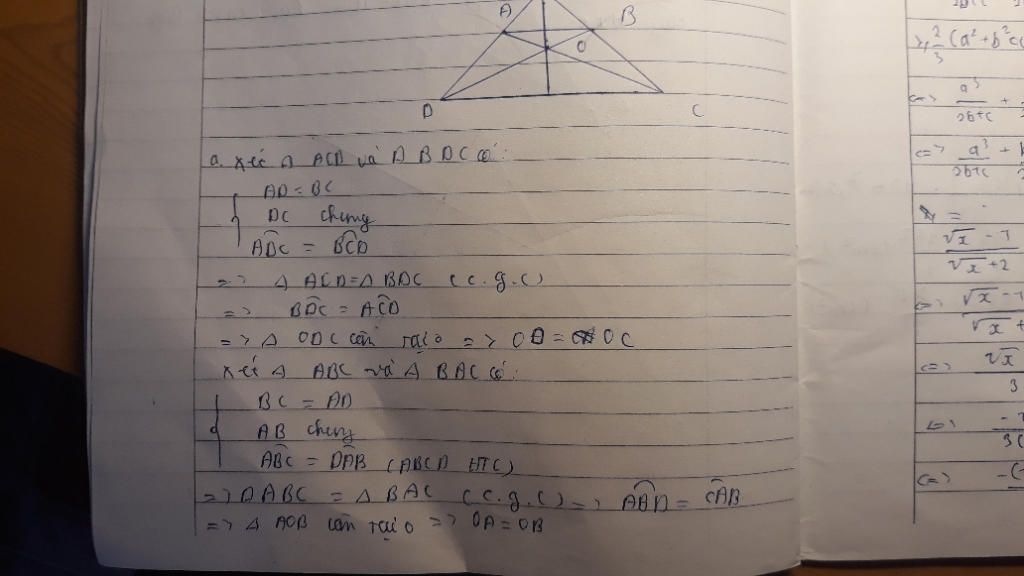 A B
O
D C
a. xét Δ ACD và Δ BDC có:
AD = BC
DC chung
ADC = BCD
=> Δ ACD = Δ BDC (c.g.c)
=> BDC = ACD
=> Δ ODC cân tại O => OD = OC
xét Δ ABC và Δ BAC có:
BC = AD
AB chung
ABC = DAB (ABCD HTC)
=> Δ ABC = Δ BAC (c.g.c) => ABD = CAB
=> Δ AOB cân tại O => OA = OB
2/3 (a²+b²+c
<=> a³/2b+c +
<=> a³/2b+c +
=
√x - 7
√x + 2
<=> √x - 7
√x +
<=> √x
3
<=> -7
3(
<=>